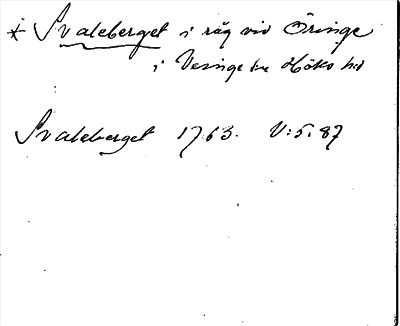 * Svaleberget i råg vid Öringe
i Veinge sn Höks hd
Svaleberget 1763. V:5:87